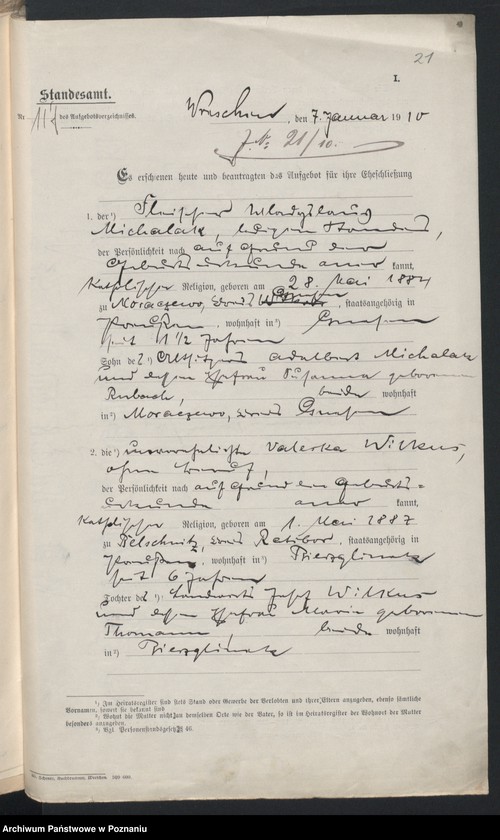 21
I.
Standesamt.
Nr. 11 des Aufgebotsverzeichnisses.
Wreschen, den 7. Januar 1910
J. No 21/10.
Es erschienen heute und beantragten das Aufgebot für ihre Eheschließung
1. der ¹) Fleischer Wladyslaus
Michalak, ledigen Standes,
der Persönlichkeit nach auf Grund der
Geburtsurkunde aner kannt,
katholischer Religion, geboren am 28. Mai 1884
zu Moraczewo, Kreis Gnesen, staatsangehörig in
Preußen, wohnhaft in ²) Gnesen
seit 1 1/2 Jahren
Sohn des ¹) Adalbert Michalak
und dessen Ehefrau Susanna geborenen
Rubach, beide wohnhaft
in ²) Moraczewo, Kreis Gnesen
2. die ¹) unverehelichte Valeska Wilkus,
ohne Beruf,
der Persönlichkeit nach auf Grund der Geburts-
urkunde aner kannt,
katholischer Religion, geboren am 1. Mai 1887
zu Belschnitz, Kreis Ratibor, staatsangehörig in
Preußen, wohnhaft in ²) Bierzglinek
seit 6 Jahren
Tochter des ¹) Landwirts Josef Wilkus
und dessen Ehefrau Marie geborenen
Thomann, beide wohnhaft
in ²) Bierzglinek
¹) Im Heiratsregister sind stets Stand oder Gewerbe der Verlobten und ihrer Eltern anzugeben, ebenso sämtliche
Vornamen, soweit sie bekannt sind
²) Wohnt die Mutter nicht an demselben Orte wie der Vater, so ist im Heiratsregister der Wohnort der Mutter
besonders anzugeben.
³) Vgl. Personenstandsgesetz § 46.
Archiwum Państwowe w Poznaniu